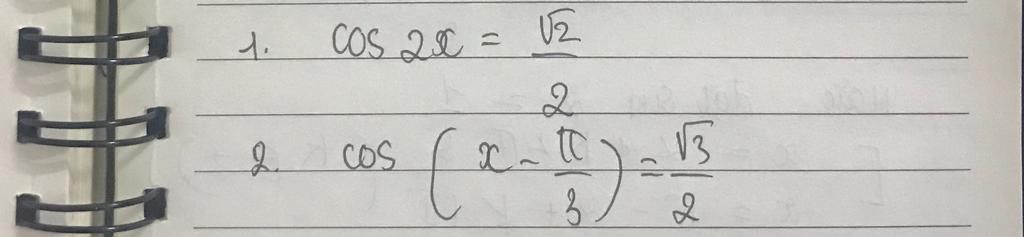 1. cos 2x = √2/2
2. cos (x - π/3) = √3/2